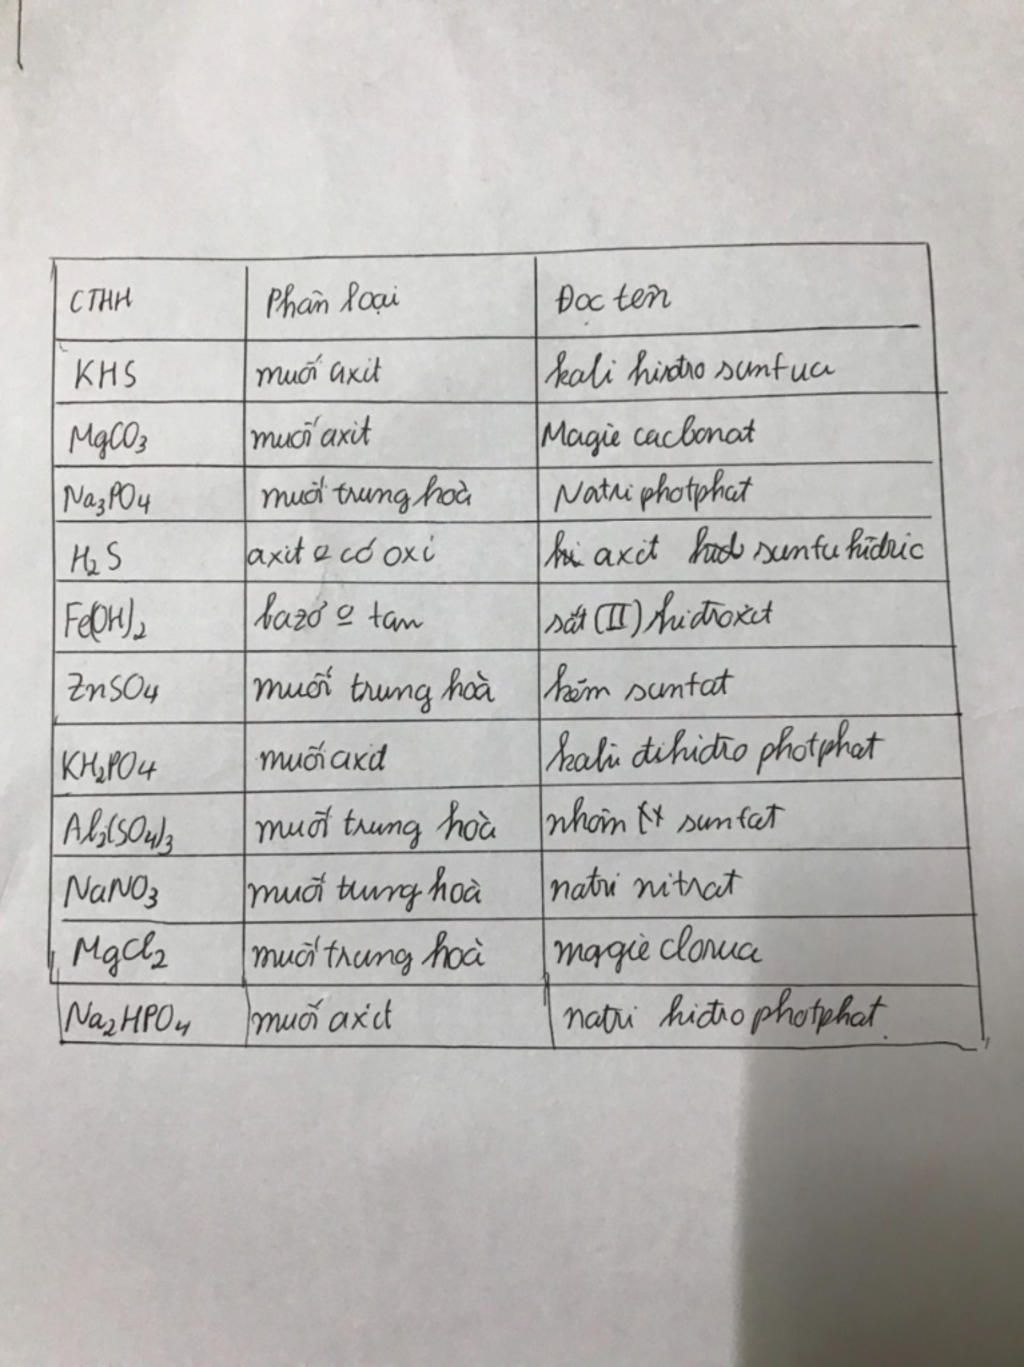 CTHH Phân loại Đọc tên
KHS muối axit kali hiđro sunfua
MgCO3 muối axit Magie cacbonat
Na3PO4 muối trung hoà Natri photphat
H2S axit o có oxi axit sunfu hiđric
Fe(OH)2 bazơ o tan sắt (II) hiđroxit
ZnSO4 muối trung hoà kẽm sunfat
KH2PO4 muối axit kali đihiđro photphat
Al2(SO4)3 muối trung hoà nhôm sunfat
NaNO3 muối trung hoà natri nitrat
MgCl2 muối trung hoà magie clorua
Na2HPO4 muối axit natri hiđro photphat